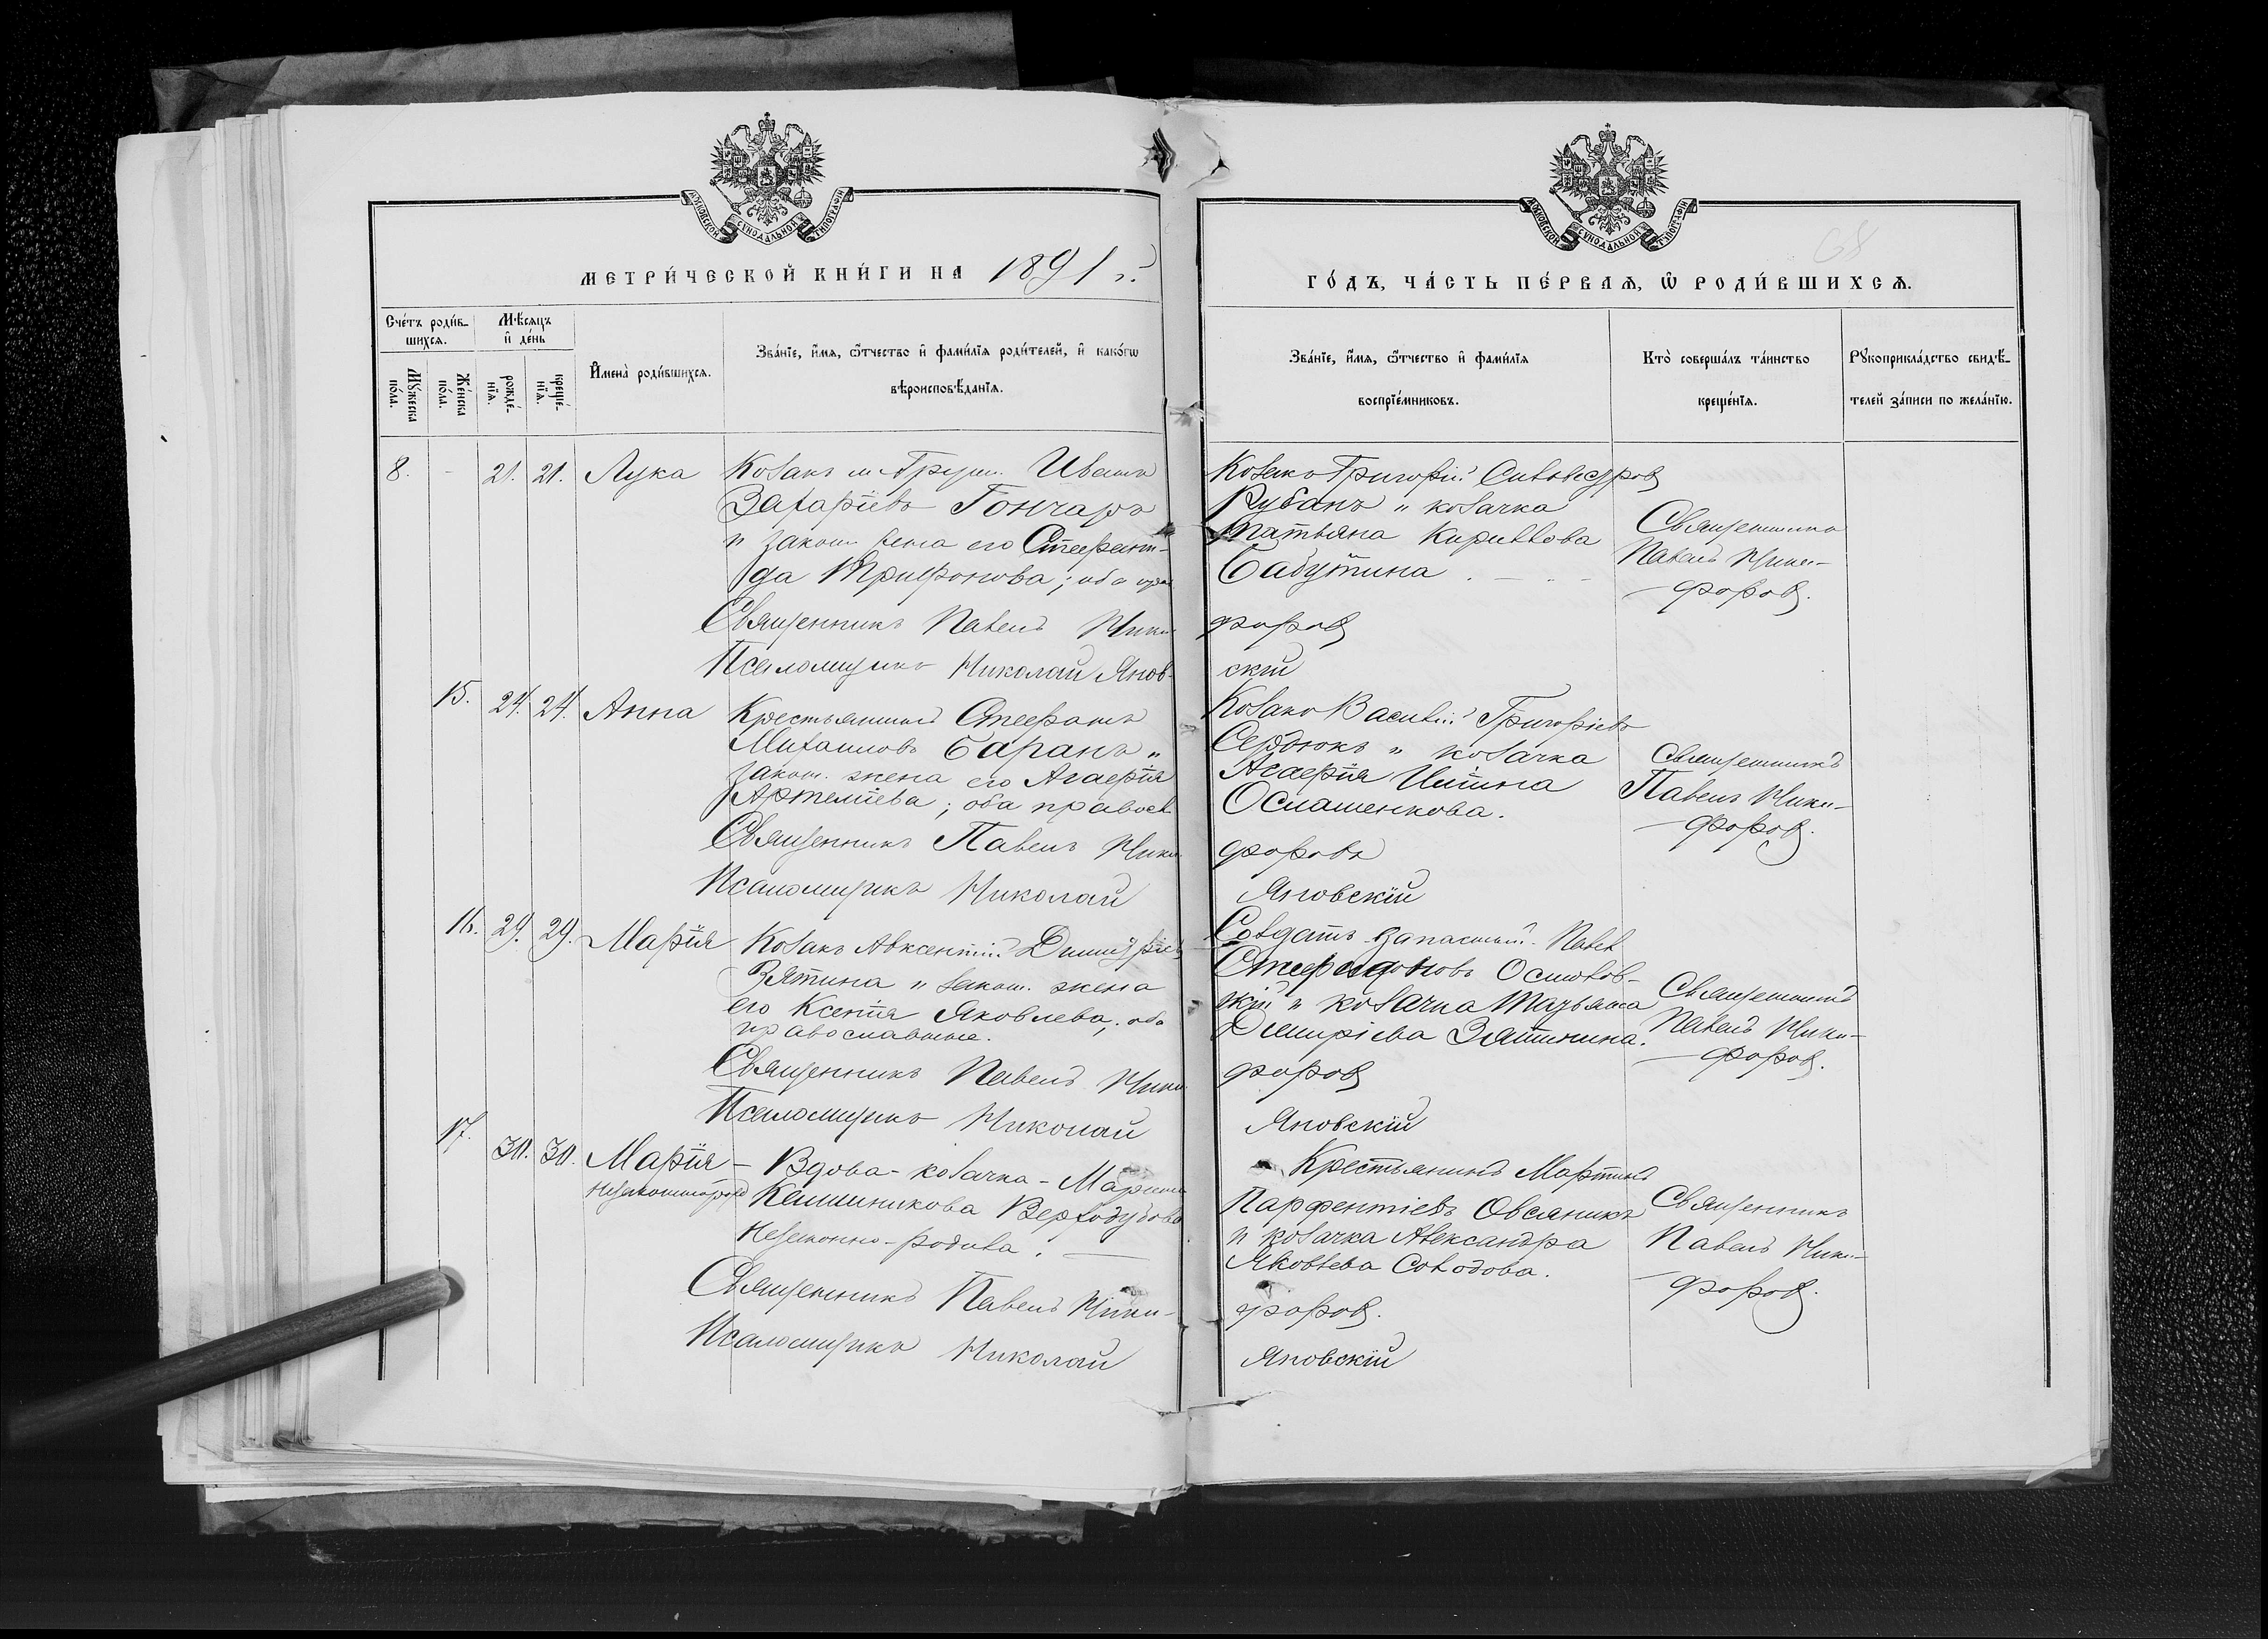 МОСКОВСКОЙ СѴНОДАЛЬНОЙ ТИПОГРАФІИ
МЕТРИ́ЧЕСКОЙ КНИ́ГИ НА 1891 г.
Сче́тъ роди́в-
шихсѧ.
Мѣ́сѧцъ
и҆ де́нь
Мꙋ́жеска
по́ла.
Же́нска
по́ла.
рожде́-
нїѧ.
креще́-
нїѧ.
И҆мена̀ роди́вшихсѧ.
Зва́нїе, и҆́мѧ, ѻ҆́тчество и҆ фами́лїѧ роди́телей, и҆ како́гѡ
вѣроисповѣ́данїѧ.
8. - 21. 21. Лука
Козакъ м. Груш. Иванъ
Захаріевъ Гончаръ
и закон. жена его Стефани-
да Трифонова; оба
Священникъ Павелъ Ники
Псаломщикъ Николай Янов-
15. 24. 24. Анна
Крестьянинъ Стефанъ
Михаиловъ Баранъ и
закон. жена его Агафія
Артеміева; оба правосл
Священникъ Павелъ Ники
Псаломщикъ Николай
16. 29. 29. Марія
Козакъ Авксентій Димитріев
Зятина и закон. жена
его Ксенія Яковлева; оба
православные.
Священникъ Павелъ Ники
Псаломщикъ Николай
17. 30. 30. Марія -
Вдова - козачка - Марина
Верходубова
Незаконно-родила. —
Священникъ Павелъ Ники-
Псаломщикъ Николай
МОСКОВСКОЙ СѴНОДАЛЬНОЙ ТИПОГРАФІИ
68
ГО́ДЪ, ЧА́СТЬ ПЕ́РВАѦ, Ѡ҆ РОДИ́ВШИХСѦ.
Зва́нїе, и҆́мѧ, ѻ҆́тчество и҆ фами́лїѧ
воспрїе́мниковъ.
Кто̀ соверша́лъ та́инство
креще́нїѧ.
Рꙋкоприкла́дство свидѣ́-
телей за́писи по жела́нїю.
Козакъ Григорій Сильвестров
Рубанъ и козачка
Татьяна Кириллова
Бабутина
Священникъ
Павелъ Ники-
форов.
форов
скій
Козакъ Василій Григоріевъ
Сердюкъ и козачка
Агафія
Осташенкова.
Священникъ
Павелъ Ники-
форов.
форовъ
Яновскій
Солдатъ запасный Павел
скій и козачка Татьяна
Димиріева Зятинина.
Священникъ
Павелъ Ники-
форов.
форов
Яновскій
Крестьянинъ Мартинъ
Парфентіевъ Овсяникъ
и козачка Александра
Яковлева Солодова.
Священникъ
Павелъ Ники-
форов.
форов.
Яновскій